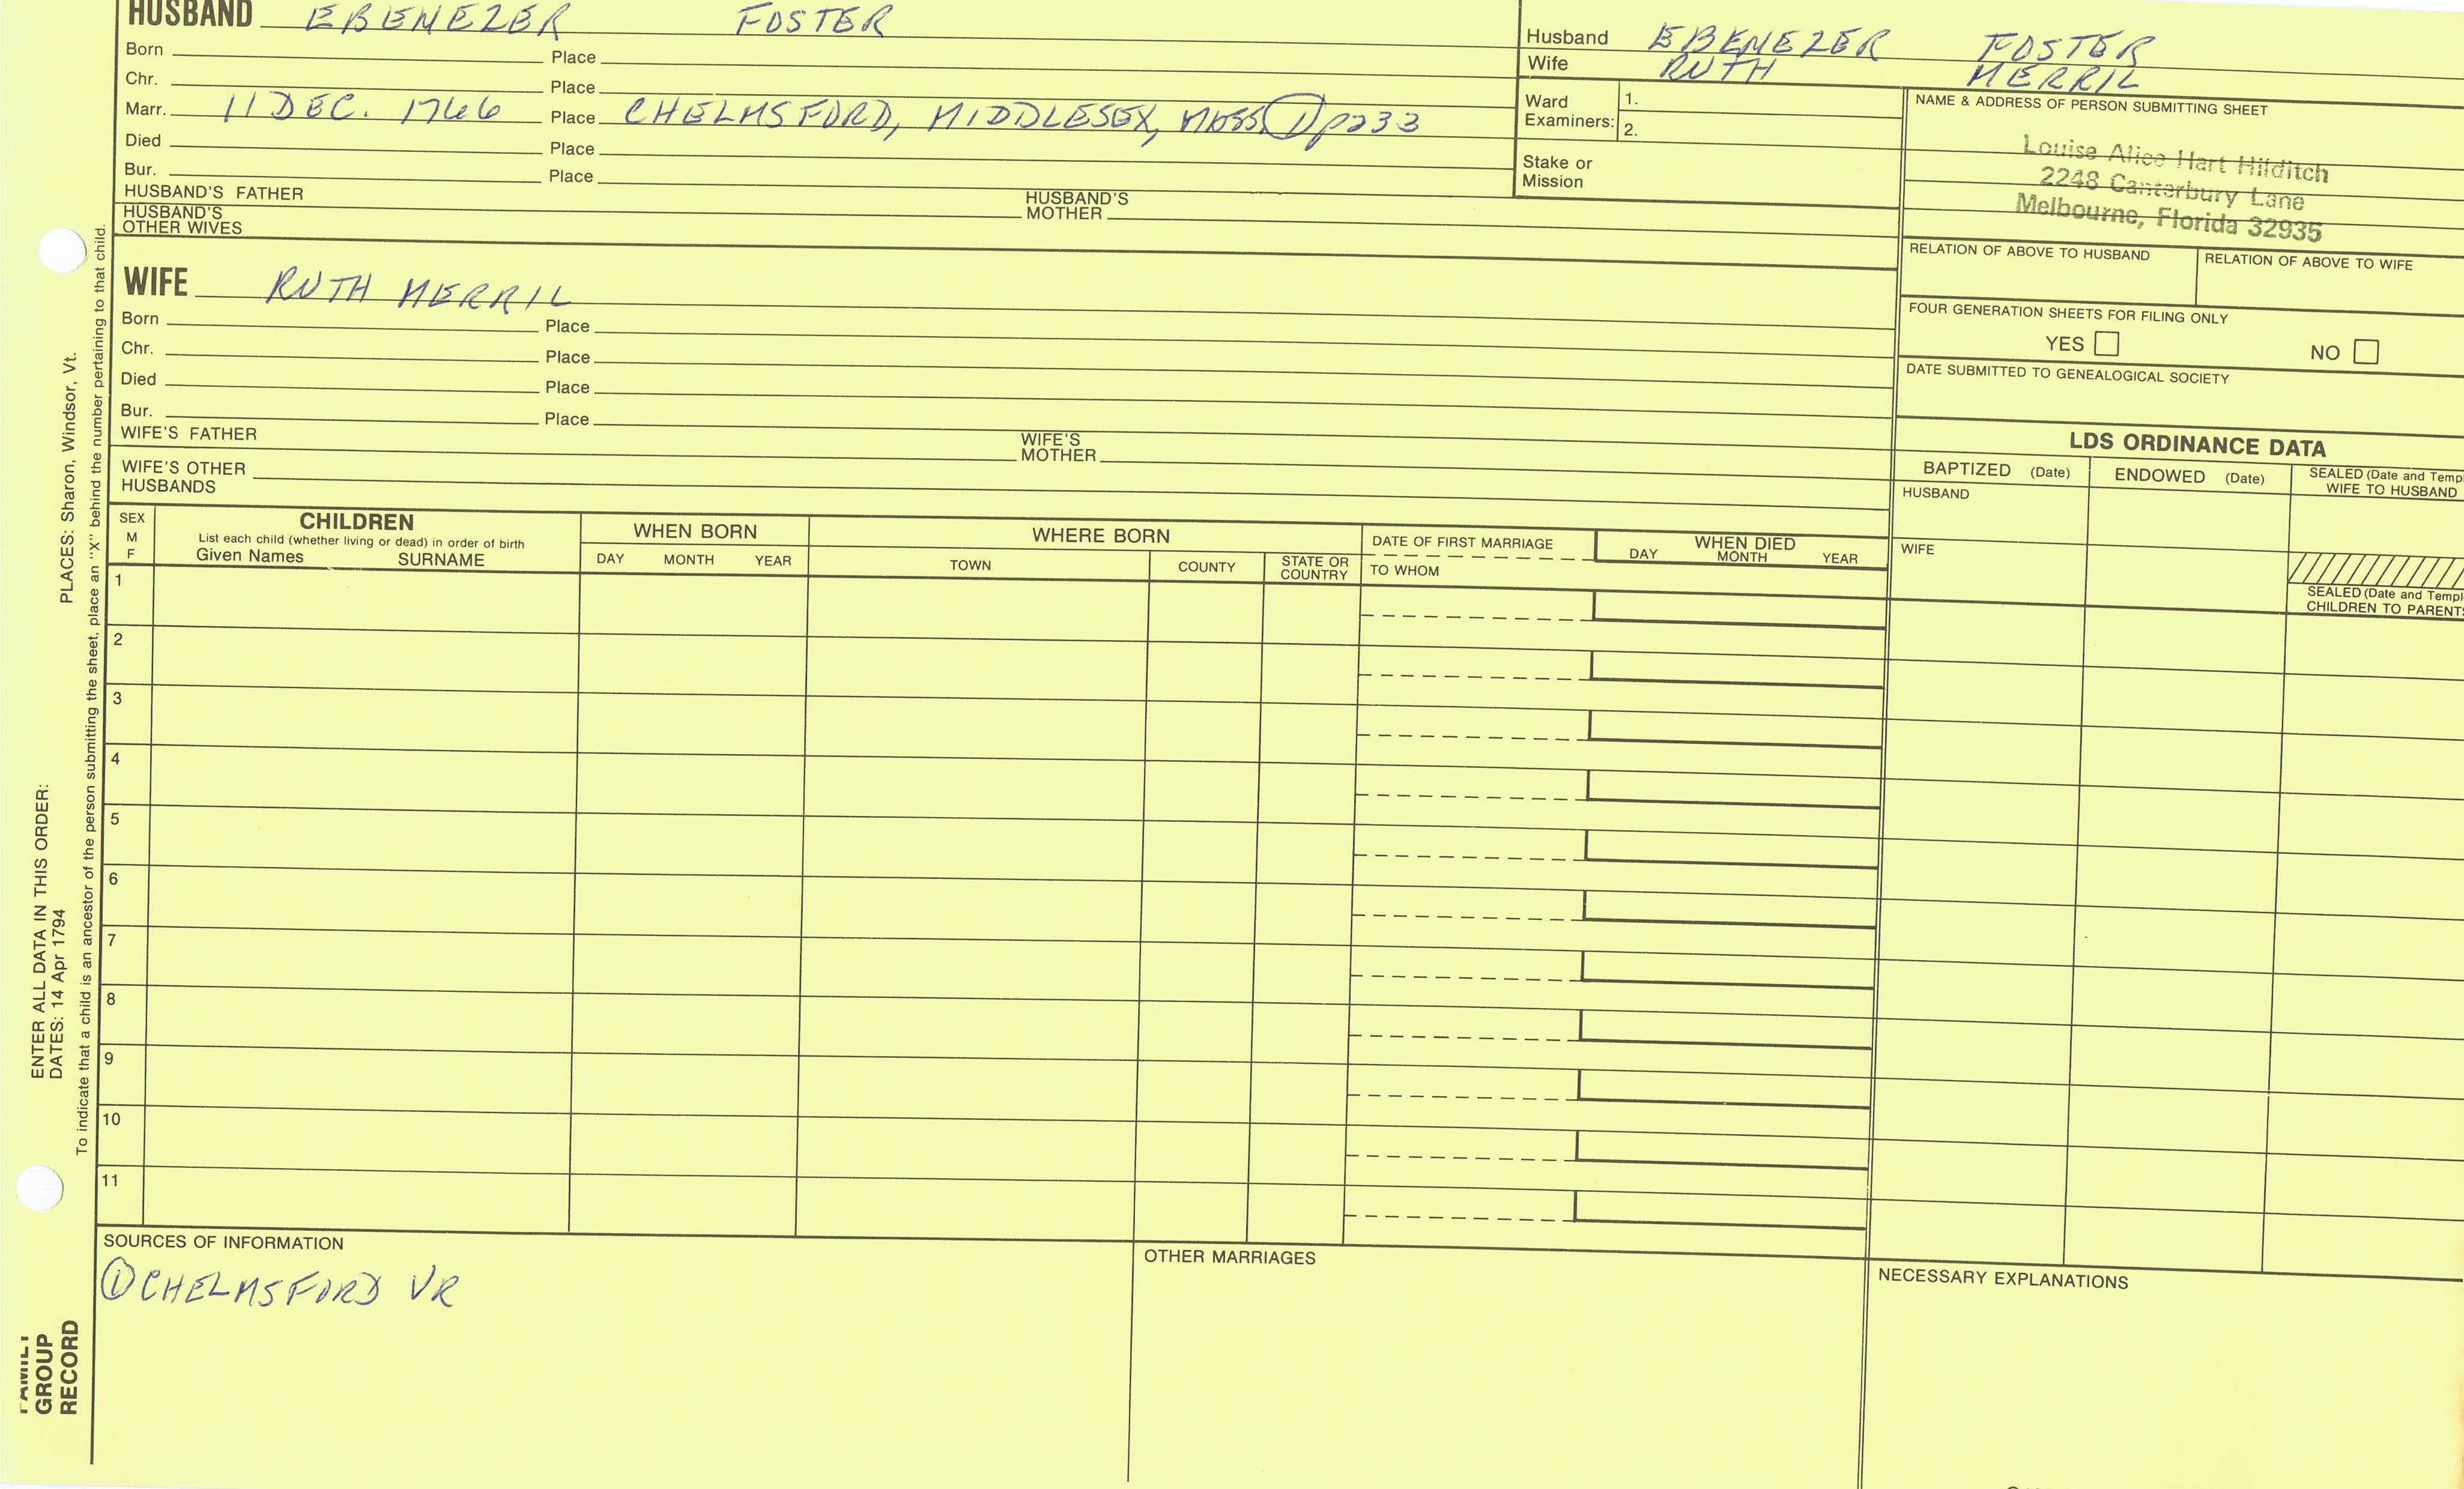 HUSBAND EBENEZER FOSTER
Born Place
Chr. Place
Marr. 11 DEC. 1766 Place CHELMSFORD, MIDDLESEX, MASS ① p233
Died Place
Bur. Place
HUSBAND'S FATHER HUSBAND'S MOTHER
HUSBAND'S OTHER WIVES
Husband EBENEZER FOSTER
Wife RUTH MERRIL
Ward Examiners: 1.
2.
Stake or Mission
NAME & ADDRESS OF PERSON SUBMITTING SHEET
Louise Alice Hart Hilditch
2248 Canterbury Lane
Melbourne, Florida 32935
RELATION OF ABOVE TO HUSBAND RELATION OF ABOVE TO WIFE
FOUR GENERATION SHEETS FOR FILING ONLY
YES NO
DATE SUBMITTED TO GENEALOGICAL SOCIETY
WIFE RUTH MERRIL
Born Place
Chr. Place
Died Place
Bur. Place
WIFE'S FATHER WIFE'S MOTHER
WIFE'S OTHER HUSBANDS
LDS ORDINANCE DATA
BAPTIZED (Date) ENDOWED (Date) SEALED (Date and Temp
WIFE TO HUSBAND
HUSBAND
WIFE
SEALED (Date and Templ
CHILDREN TO PARENTS
SEX
M
F
CHILDREN
List each child (whether living or dead) in order of birth
Given Names SURNAME
WHEN BORN
DAY MONTH YEAR
WHERE BORN
TOWN COUNTY STATE OR COUNTRY
DATE OF FIRST MARRIAGE
TO WHOM
WHEN DIED
DAY MONTH YEAR
1
2
3
4
5
6
7
8
9
10
11
SOURCES OF INFORMATION
① CHELMSFORD VR
OTHER MARRIAGES
NECESSARY EXPLANATIONS
ENTER ALL DATA IN THIS ORDER:
DATES: 14 Apr 1794 PLACES: Sharon, Windsor, Vt.
To indicate that a child is an ancestor of the person submitting the sheet, place an "X" behind the number pertaining to that child.
FAMILY
GROUP
RECORD